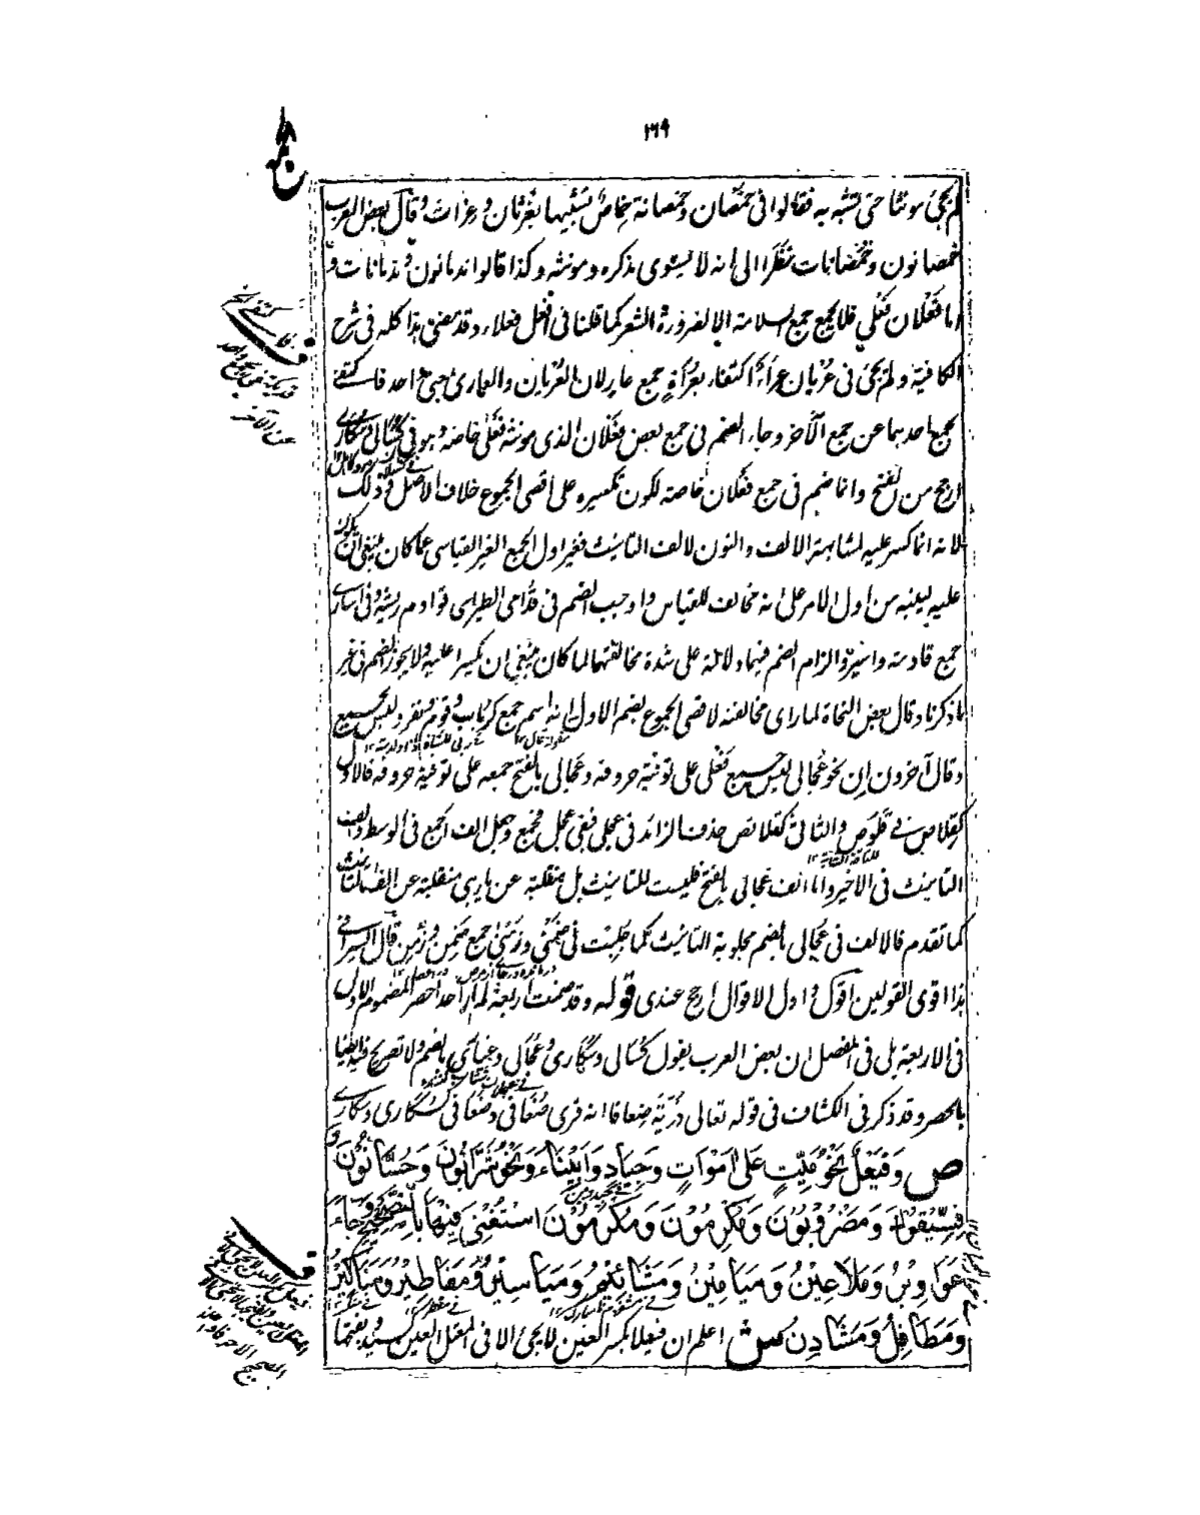 ١٢٩
لم يجئ مونثا حتى تشبه به فقالوا فى خمصان وخمصانة خماص تشبيها بغرثان و غراث وقال بعض العرب
خمصانون وخمصانات نظرا الى انه لا يستوى مذكره ومونثه وكذا قالوا ندمانون وندمانات و
اما فعلان فعلى فلا يجمع جمع السلامة الا لضرورة الشعر كما قلنا فى افعل فعلاء وقد مضى هذا كله فى شرح
الكافية ولم يجئ فى عريان عراة اكتفاء بعراة جمع عار لان العريان والعارى بمعنى واحد فاكتفى
بجمع احدهما عن جمع الآخر وجاء الضم فى جمع بعض فعلان الذى مونثه فعلى خاصة وهو فى كسالى وسكارى
ارجح من الفتح وانما ضم فى جمع فعلان خاصة لكون تكسيره على اقصى الجموع خلاف الاصل وذلك
لانه انما كسر عليه لمشابهة الالف والنون لالف التانيث فغير اول الجمع الغير القياسى عما كان ينبغى ان يكون
عليه لينبه من اول الامر على انه مخالف للقياس واوجب الضم فى قدامى الطير اى قوادم ريشه وفى اسارى
جمع قادمة واسير والزام الضم فيهما دلالة على شدة مخالفتهما لما كان ينبغى ان يكسرا عليه ولا يجوز الضم فى غير
ما ذكرنا وقال بعض النحاة لما راى مخالفته لاقصى الجموع بضم الاول انه اسم جمع كرباب وقوم ونفر وليس بجمع
وقال آخرون ان نحو عجالى ليس جمع فعلى على توفية حروفه وعجالى بالفتح جمعه على توفية حروفه فالاول
كقلاص فى قلوص والثانى كقلائص حذف الزائد فى عجلى فبقى عجل فجمع وجعل الف الجمع فى الوسط والف
التانيث فى الاخير واما الف عجالى بالفتح فليست للتانيث بل منقلبة عن ياء هى منقلبة عن الف التانيث
كما تقدم فالالف فى عجالى بالضم مجلوبة للتانيث كما جلبت فى ضمنى وزمنى جمع ضمن وزمن قال السيرافى
هذا اقوى القولين اقول واول الاقوال ارجح عندى قوله وقد ضمت اربعة لم ار احدا حصر المضموم الاول
فى الاربعة بلى فى المفصل ان بعض العرب يقول كسالى وسكارى وعجالى وغيارى بالضم ولا تصريح فيه ايضا
بالحصر وقد ذكر فى الكشاف فى قوله تعالى ذرية ضعافا انه قرى ضعافى وضعافى كسكارى وسكارى
ص وَفَيْعَلٌ نَحْوُ مَيِّتٍ عَلَى اَمْوَاتٍ وَجِيَادٍ وَاَبْيِنَاءَ وَنَحْوُ شَرَّابُوْنَ وَحُسَّانُوْنَ وَ
فِسِّيْقُوْنَ وَمَضْرُوْبُوْنَ وَمُكْرِمُوْنَ وَمُكْرَمُوْنَ اسْتُغْنِىَ فِيْهَا بِالتَّصْحِيْحِ وَجَاءَ
عَوَاوِيْرُ وَمَلَاعِيْنُ وَمَيَامِيْنُ وَمَشَائِيْمُ وَمَيَاسِيْرُ وَمَفَاطِيْرُ وَمَنَاكِيْرُ
وَمَطَافِلُ وَمَشَادِنُ ش اعلم ان فيعلا بكسر العين لا يجئ الا فى المعتل العين كسيد وبفتحها